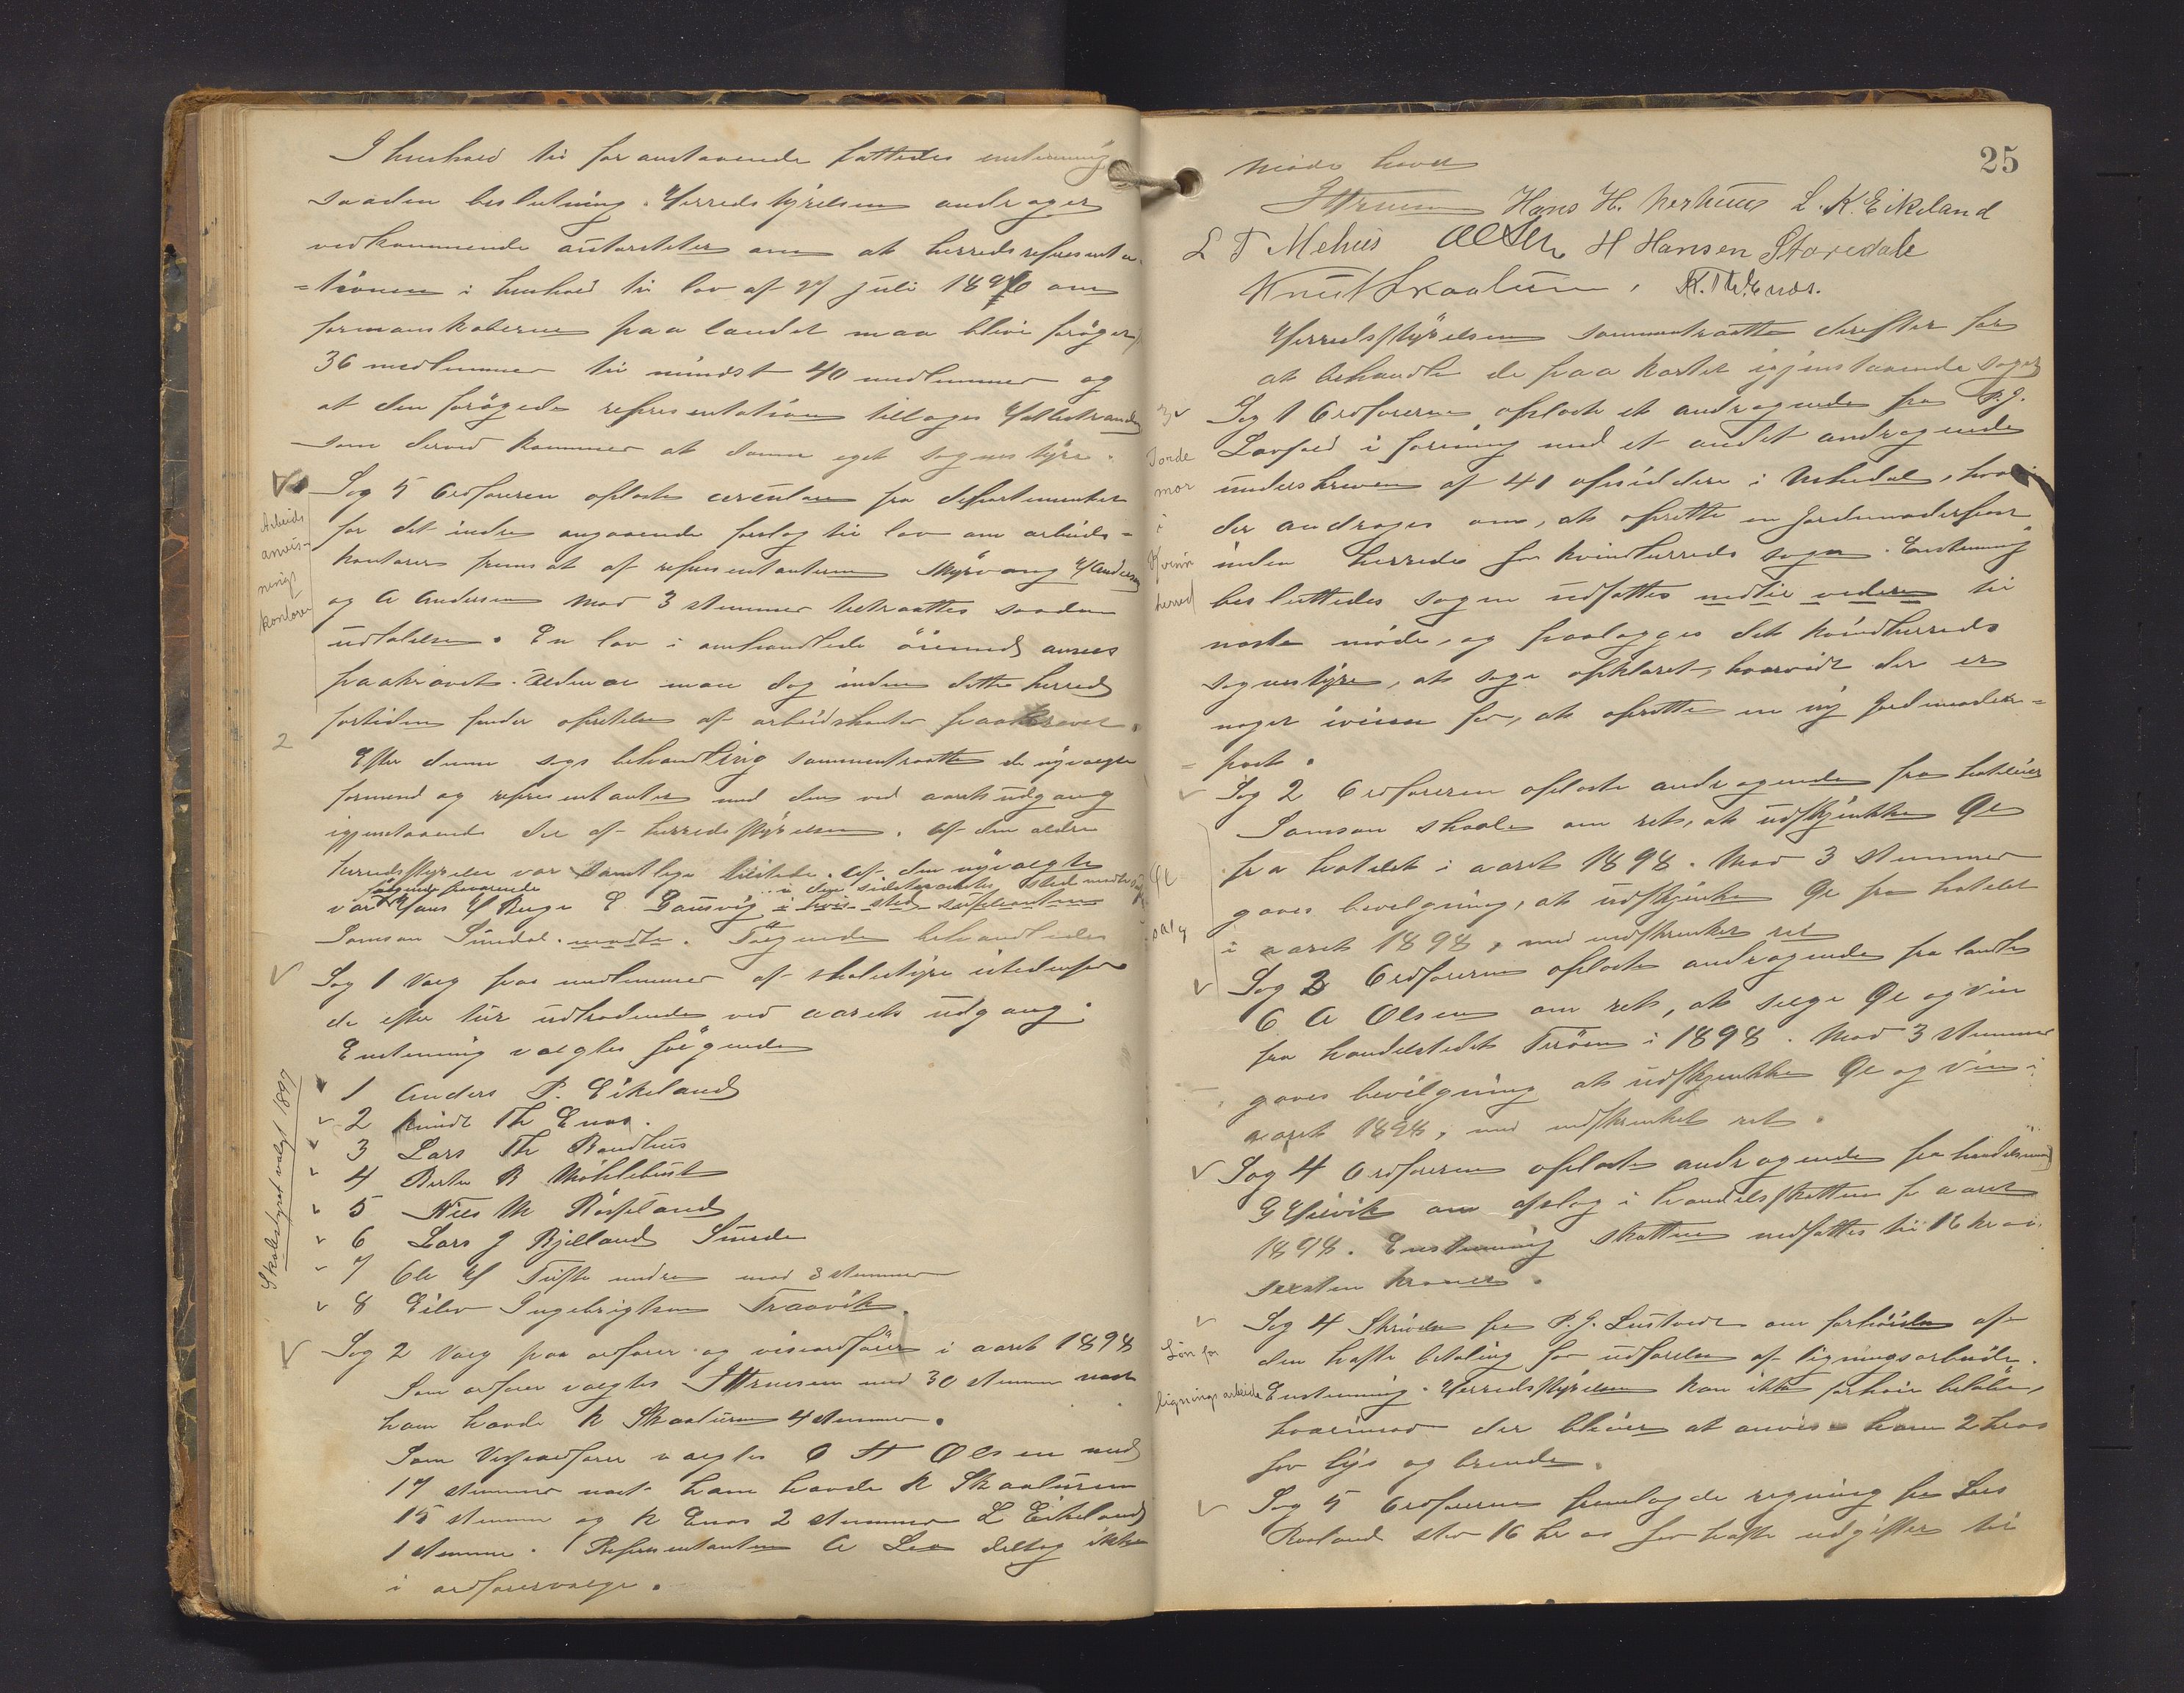 I henhold til foranstaaende fattedes enstemmig
saaden beslutning. Herredstyrelsen andrager
vedkommende autoriteter om at herredsrepresenta-
=tionen i henhold til lov af 27 juli 1896 om
formanskaberne paa landet maa blive forøget fra
36 medlemmer til mindst 40 medlemmer og
at den forøgede representation tillæges
som derved kommer at danne eget sognestyre.
Sag 5 Ordføreren opleste circulære fra departementet
for det indre angaaende forslag til lov om arbeids=
kontorer fremsat af representanterne Myrvang H Andersen
og A Andersen Mod 3 stemmer vedtoges saaden
udtalelse. En lov i omhandlede øiemed ansees
paakrævet. man dog inden dette herred
fortiden finder oprettelse af arbeidskontor paakrævet.
Arbeids
anvis-
nings
kontorer
2
Efter denne sags behandling sammentraatte de nyvalgte
formænd og representanter med den ved aarets udgang
igjenstaaende del af herredsstyrelsen. Af den ældre
herredsstyrelse var samtlige tilstede. Af den nyvalgte
følgende fraværende i den sidstnævntes sted mødte
var Hans H Berge E Gausvig i hvis sted suppleanten
Samson Sundal. mødte. Følgende behandledes
Sag 1 Valg paa medlemmer af skolestyre istedenfor
de efter tur udtrædende ved aarets udgang.
Enstemmig valgtes følgende
Skolestyret valgt 1897
1 Anders P. Eikeland
2 Knudt Th Enes.
3 Lars Th Sandhus
4 B Møhlebust
5 Nils M Røsseland
6 Lars J Bjelland Sunde
7 Ole H Tufte nedre mod 3 stemmer
8 Eilev Ingebrigtsen Traavik.
Sag 2 Valg paa ordfører og viseordfører i aaret 1898
Som ordfører valgtes med 30 stemmer næst
ham havde K Skaaluren 4 stemmer.
Som Viseordfører valgtes O A Olsen med
17 stemmer næst ham havde K Skaaluren
15 stemmer og K Enes 2 stemmer L Eikeland
1 stemme. Representanten A deltog ikke
i ordførervalget.
25
Møde hævet
Hans H. Nerhuus L. K. Eikeland
L T Mehus H Hansen Storedale
Knut Skaaluren, K. Th. Enes.
Herredsstyrelsen sammentraatte derefter for
at behandle de paa kartet igjenstaaende sager
Sag 1 Ordføreren opleste et andragende fra P. J.
Lovfald i forening med et andet andragende
underskreven af 41 opsiddere i , hvori
der andrages om, at oprette en Jordemoderpost
inden herredet for Kvindherreds sogn. Enstemmig
besluttedes sagen udsattes indtil videre til
næste møde, og paalægges det Kvindherreds
sognestyre, at sage opklaret, hvorvidt der er
noget iveien for, at oprette en ny Jordemoder=
=post.
3
Jorde
mor
i
Kvinn
herred
Sag 2 Ordføreren opleste andragende fra hotelier
Samson Skaale om ret, at udskjænke Øl
fra hotelet i aaret 1898. Mod 3 stemmer
gaves bevilgning, at udskjænke Øl fra hotelet
i aaret 1898, med indskrænket ret
Øl
salg
Sag 3 Ordføreren opleste andragende fra landh
O A Olsen om ret, at sælge Øl og Vin
fra handelstedet Terøen i 1898. Mod 3 stemmer
gaves bevilgning at udskjænke Øl og Vin i
aaret 1898, med indskrænket ret.
Sag 4 Ordføreren opleste andragende fra handelsmand
G Husvik om afslag i handelsskatten for aaret
1898. Enstemmig skatten nedsættes til 16 kr
sexsten kroner.
Sag 4 Skrivelse fra P. J. Lustvedt om forhøielse af
den hafte betaling for udførelse af ligningsarbeide.
Enstemmig. Herredsstyrelsen kan ikke forhøie betalen,
hvorimod der bliver at anvise ham 2 kroner
for lys og brænde.
Løn for
ligningsarbeide
Sag 5 Ordføreren fremlagde regning fra Lars
Røsland stor 16 kr 00 for hafte udgifter til